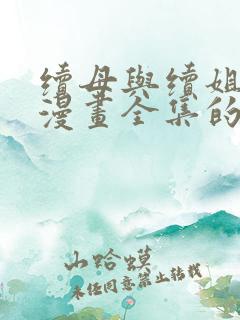 續母與續姐
漫畫全集的
山蛤蟆
未任同意禁止轉載